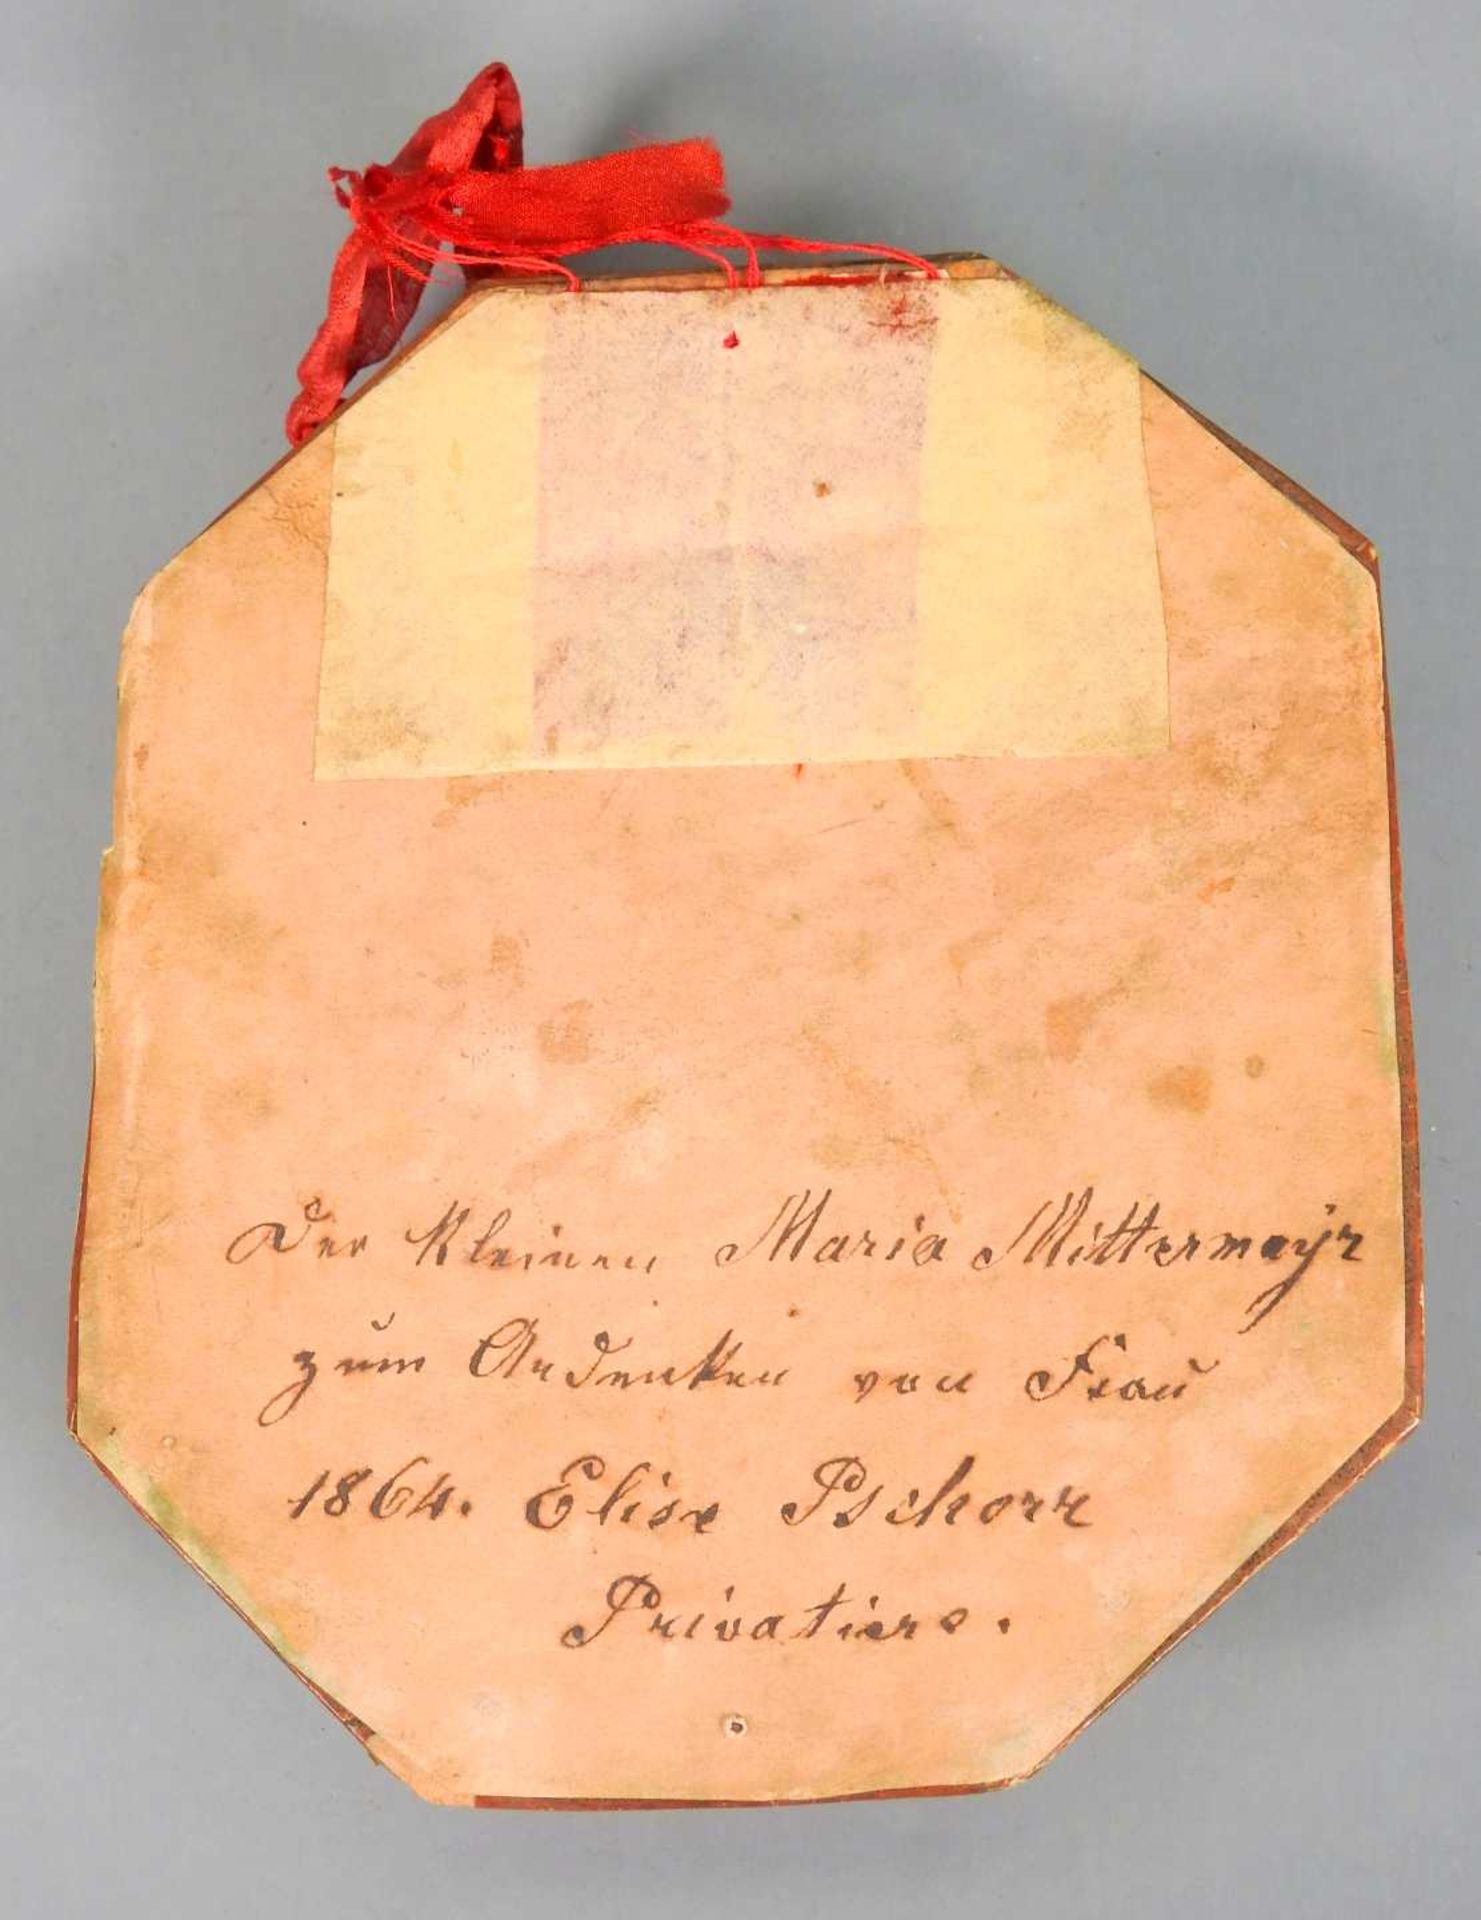 Der kleinen Maria Mittermayr
zum Andenken von Frau
1864. Elise Pschorr
Privatiere.